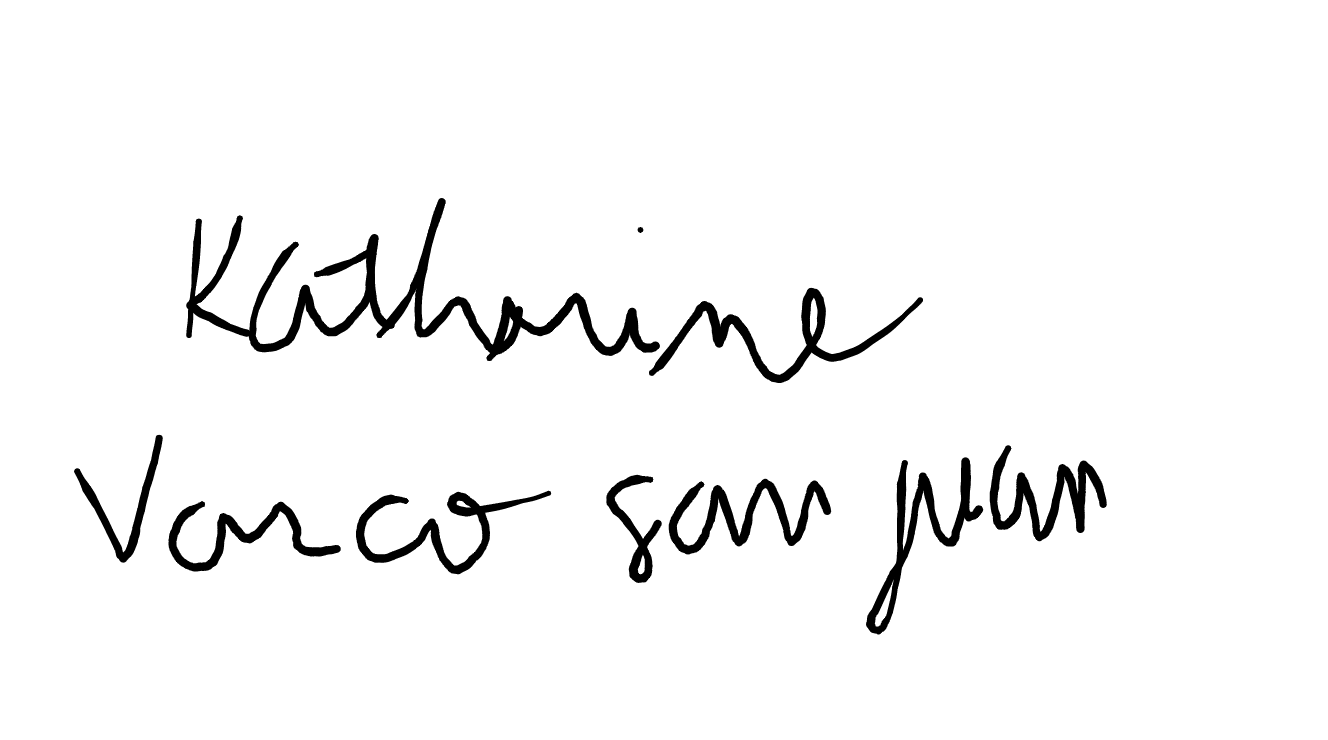 Katharine
Vasco san juan